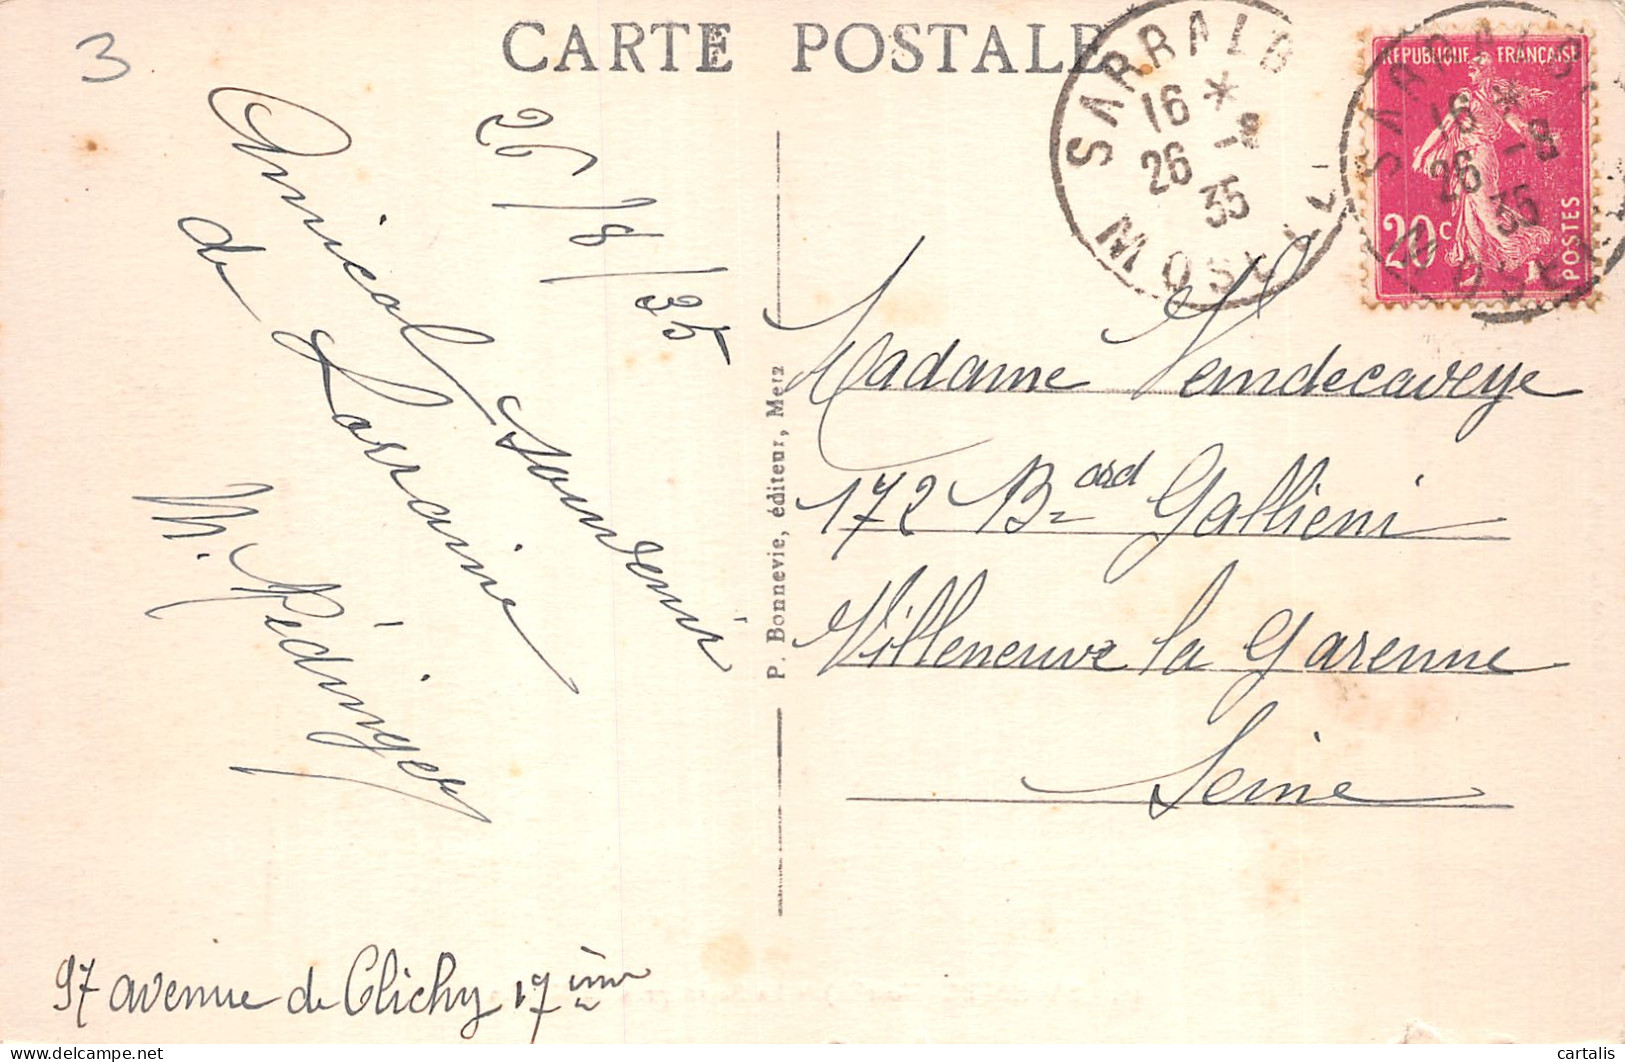 3
CARTE POSTALE
26/8/35
Amical souvenir
de Lorraine
M. Rédinger
97 avenue de Clichy 17ème
P. Bonnevie, éditeur, Metz
SARRALBE
16 *
26 -8
35
MOSELLE
REPUBLIQUE FRANÇAISE
20c
POSTES
SARRALBE
16 *
26 -8
35
MOSELLE
Madame Vemdecaveye
172 Bard Gallieni
Villeneuve la Garenne
Seine
cartalis
delcampe.net